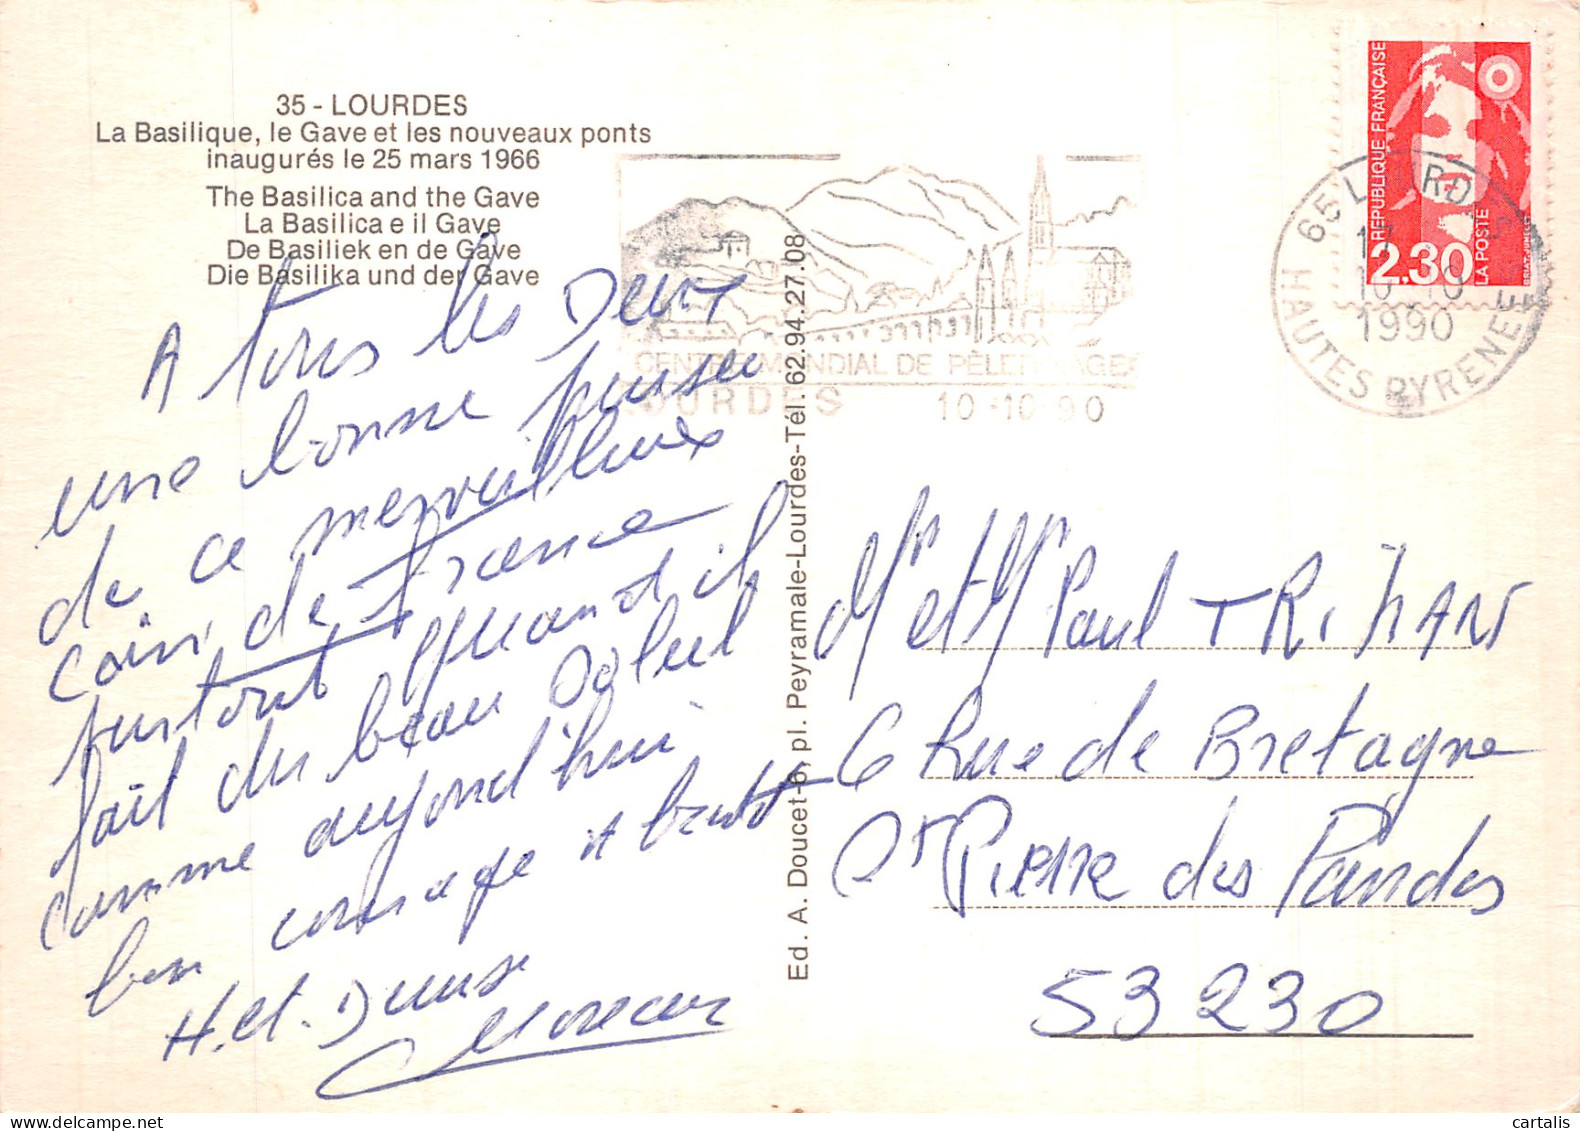 35 - LOURDES
La Basilique, le Gave et les nouveaux ponts
inaugurés le 25 mars 1966
The Basilica and the Gave
La Basilica e il Gave
De Basiliek en de Gave
Die Basilika und der Gave
A tous les Deux
une bonne pensée
de ce merveilleux
coin de France
surtout quand il
fait du beau Soleil
comme aujourd'hui
bon courage et
H. et Denise
Ed. A. Doucet-6, pl. Peyramale-Lourdes-Tél. 62.94.27.08
CENTRE MONDIAL DE PÈLERINAGES
LOURDES 10-10-90
RÉPUBLIQUE FRANÇAISE
2.30
LA POSTE
65 LOURDES
10-10
1990
HAUTES PYRENEES
Mr et Mme Paul TRIHAN
6 Rue de Bretagne
St Pierre des Landes
53230
cartalis